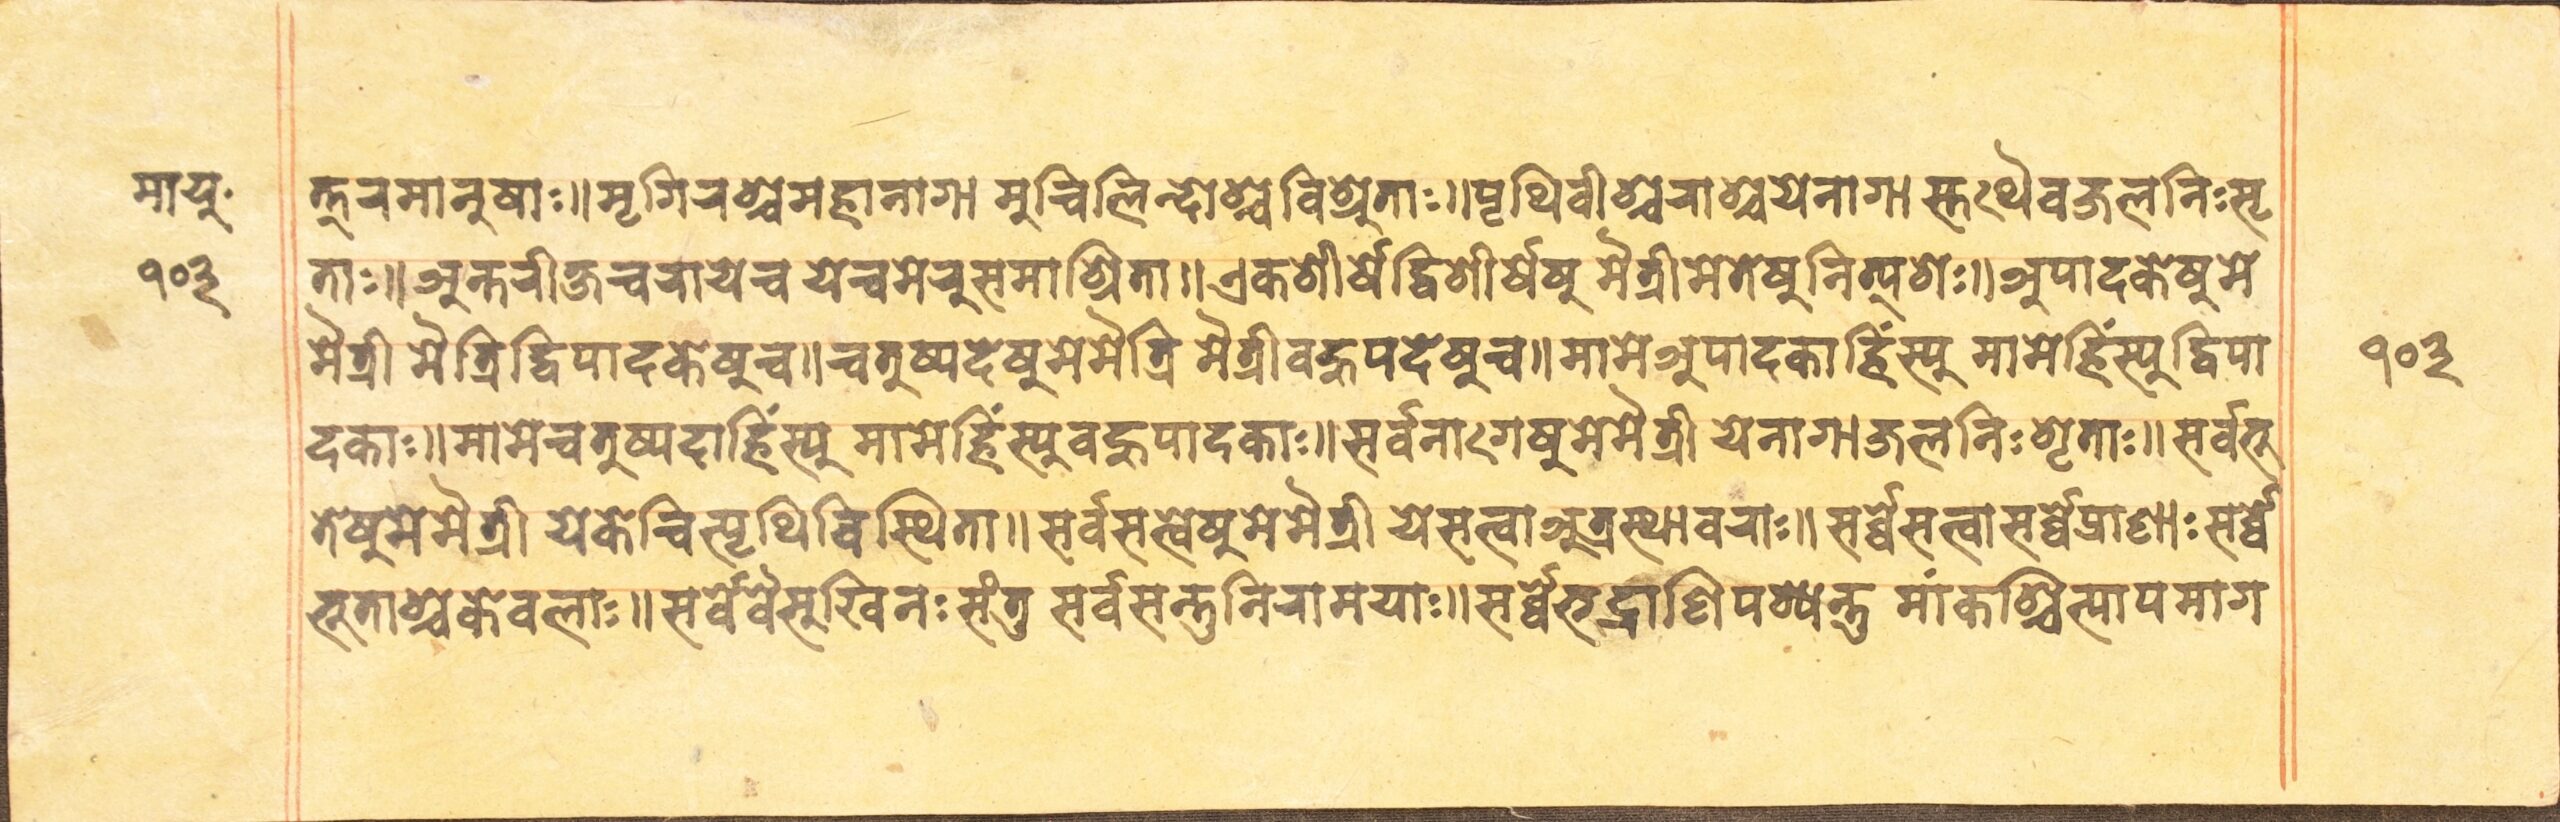 मायु·
१०३
त्तुरमानुषाः॥मृगिरश्चमहानागा मुचिलिन्दोश्चविश्रुताः॥पृथिवीश्चराश्चयेनागा स्तथैवजलनिःसृ
ताः॥अन्तरीक्षचरायेच येचमेरुसमाश्रिता॥एकशीर्षेद्विशीर्षेषु मैत्रीमेतेषुनित्यशः॥अपादकेषुमे
मैत्री मैत्रिद्विपादकेषुच॥चतुष्पदेषुमेमैत्रि मैत्रीवहुपदेषुच॥मामेअपादकाहिंस्यु मामेहिंस्युद्विपा
१०३
दकाः॥मामेचतुष्पदाहिंस्यु मामेहिंस्युवहुपादकाः॥सर्वनागेषुमेमैत्री येनागाजलनिःशृताः॥सर्वभू
तेषुमेमैत्री येकेचित्पृथिविस्थिता॥सर्वसत्वेषुमेमैत्री येसत्वाअत्रस्थावराः॥सर्व्वेसत्वासर्व्वेप्राणाःसर्व्वे
भुताश्चकेवलाः॥सर्वेवैसुखिनःसंतु सर्वसन्तुनिरामयाः॥सर्व्वेभद्राणिपश्यन्तु मांकश्चित्पापमाग